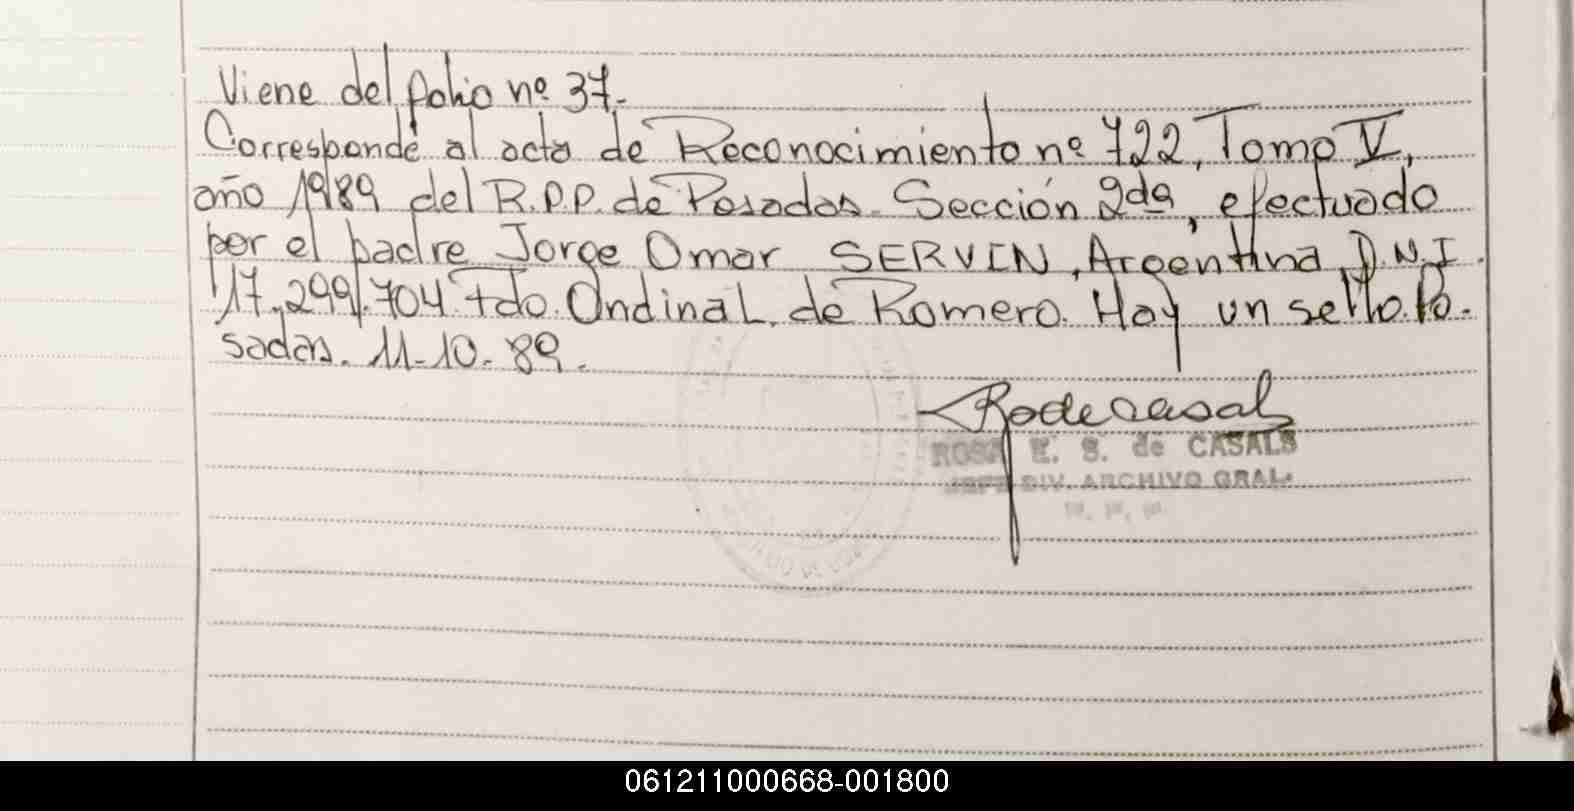 Viene del folio nº 37.
Corresponde al acta de Reconocimiento nº 722, Tomo V,
año 1989 del R.P.P. de Posadas. Sección 2da, efectuado
por el padre Jorge Omar SERVIN, Argentina, D.N.I.
17.299.704 Fdo. Ondina L. de Romero. Hay un sello. Po-
sadas. 11-10-89.
Rodecasals
ROSA E. S. de CASALS
JEFE DIV. ARCHIVO GRAL.
061211000668-001800